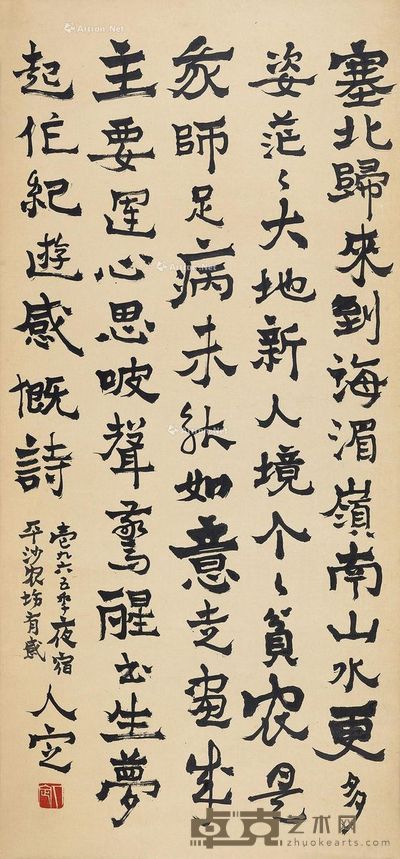 塞北歸來到海湄嶺南山水更多
姿茫〻大地新人境个〻貧农是
我師足病未能如意走畫成
主要運心思聲驚醒書生夢
起作紀遊感慨詩
壹九六五年夜宿
平沙农场有感
人定
卓克艺术网
zhuokearts.com
Artron.Net
Artron.Net
Artron.Net